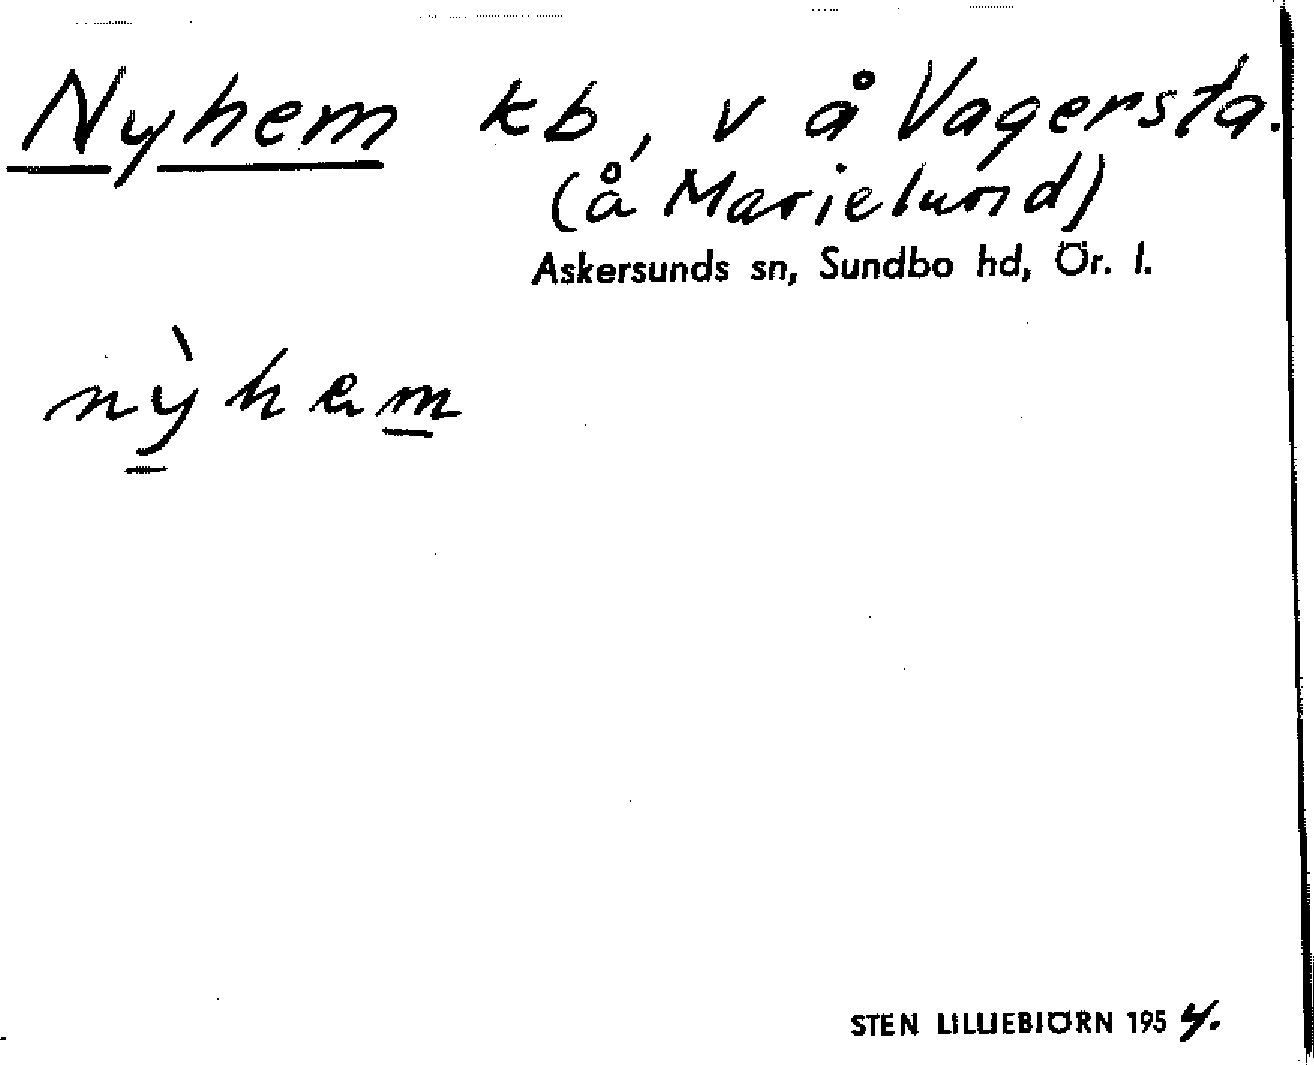 Nyhem kb, v å Vagersta.
(å Marielund)
Askersunds sn, Sundbo hd, Ör. l.
nỳhem
STEN LILLIEBIÖRN 1954.